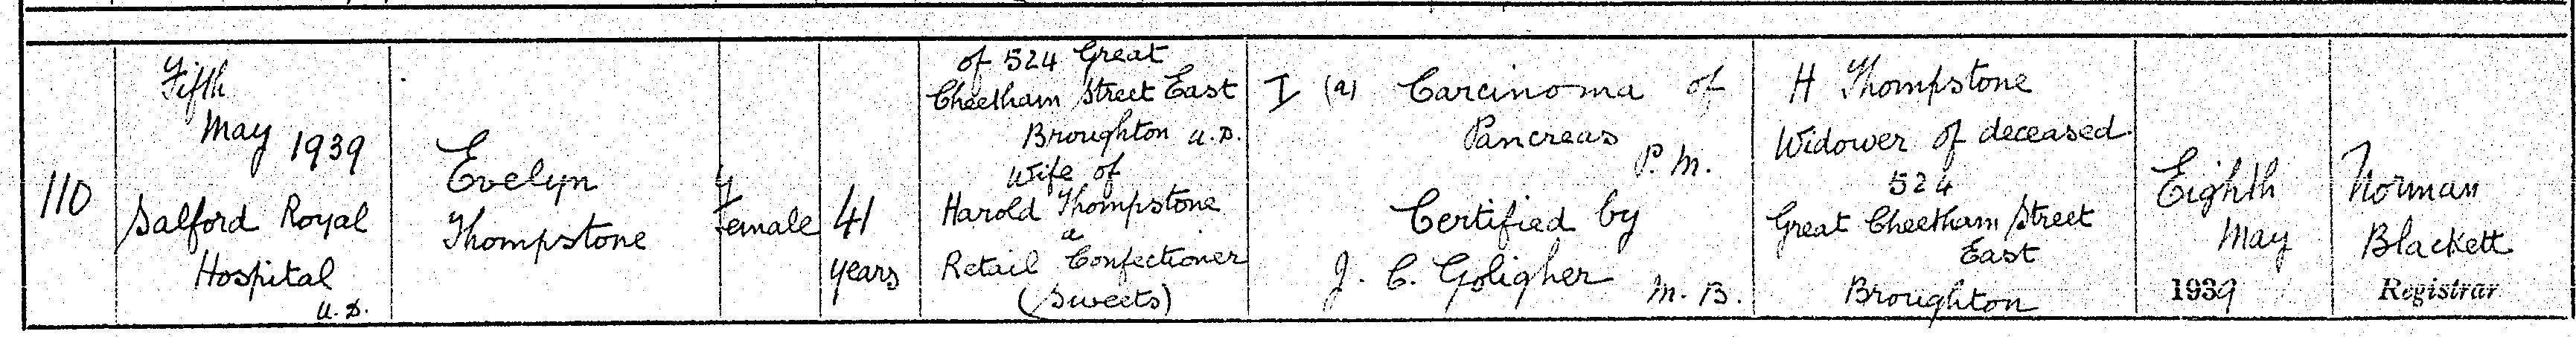 110
Fifth
May 1939
Salford Royal
Hospital
U.D.
Evelyn
Thompstone
Female
41
years
of 524 Great
Cheetham Street East
Broughton U.D.
Wife of
Harold Thompstone
a
Retail Confectioner
(Sweets)
I (a) Carcinoma of
Pancreas
P.M.
Certified by
J. C. Goligher M.B.
H Thompstone
Widower of deceased
524
Great Cheetham Street
East
Broughton
Eighth
May
1939
Norman
Blackett
Registrar